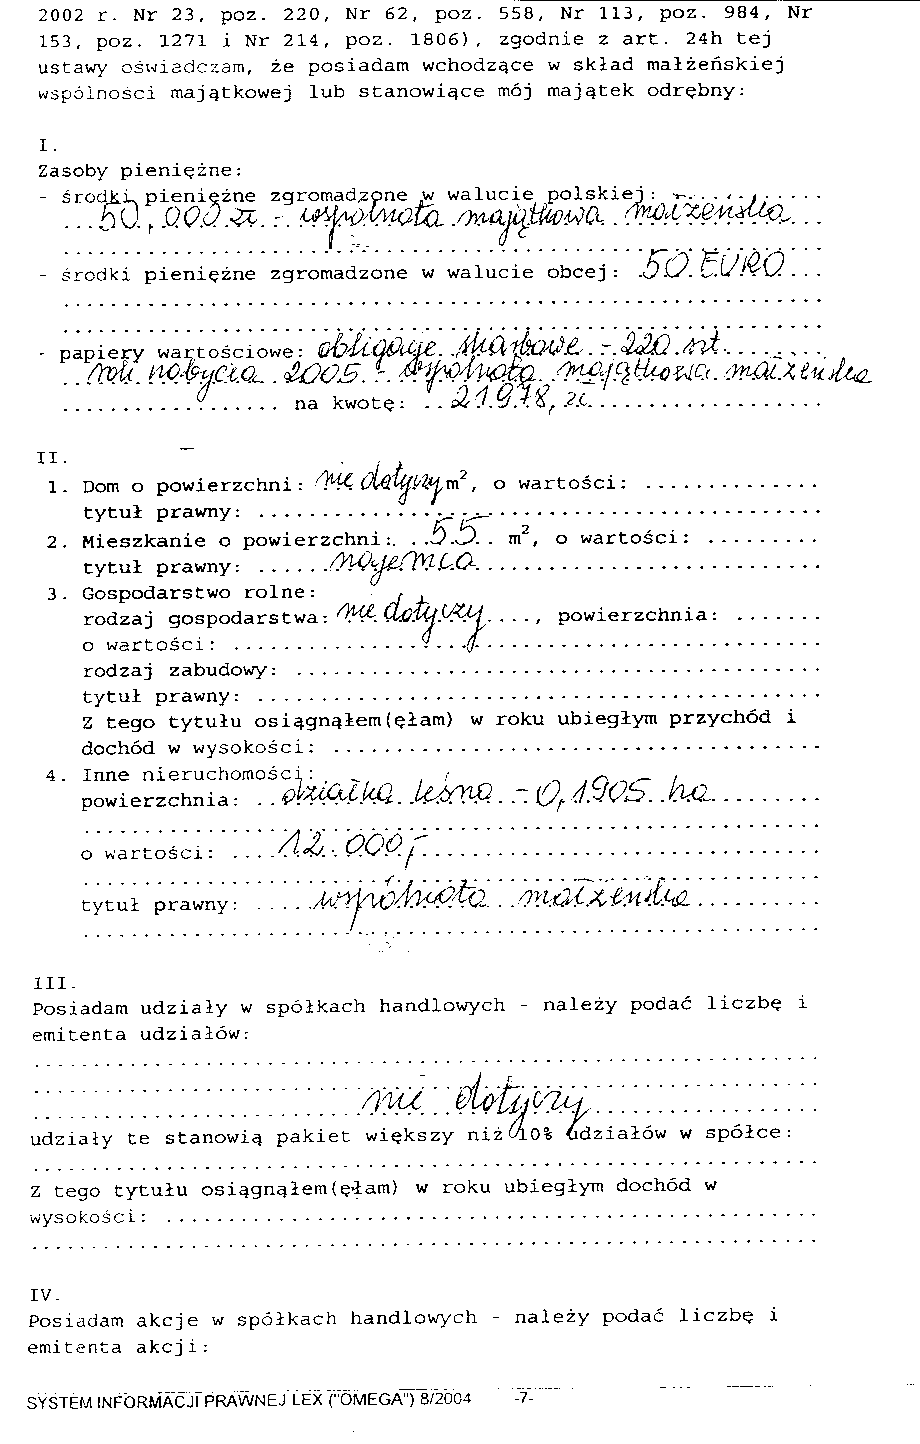 2002 r. Nr 23, poz. 220, Nr 62, poz. 558, Nr 113, poz. 984, Nr
153, poz. 1271 i Nr 214, poz. 1806), zgodnie z art. 24h tej
ustawy oświadczam, że posiadam wchodzące w skład małżeńskiej
wspólności majątkowej lub stanowiące mój majątek odrębny:
I.
Zasoby pieniężne:
- środki pieniężne zgromadzone w walucie polskiej: ............
...50.000 zł. - wspólnota majątkowa małżeńska...
...............................................................
- środki pieniężne zgromadzone w walucie obcej: 50 EURO...
...............................................................
...............................................................
- papiery wartościowe: obligacje skarbowe - 220 szt.........
..rok nabycia 2005 - wspólnota majątkowa małżeńska
.................. na kwotę: ..21.978, zł...................
II.
1. Dom o powierzchni: nie dotyczy m², o wartości: ..............
tytuł prawny: ...............................................
2. Mieszkanie o powierzchni: ...55.. m², o wartości: .........
tytuł prawny: ......najemca............................
3. Gospodarstwo rolne:
rodzaj gospodarstwa: nie dotyczy...., powierzchnia: .......
o wartości: .................................................
rodzaj zabudowy: ............................................
tytuł prawny: ...............................................
Z tego tytułu osiągnąłem(ęłam) w roku ubiegłym przychód i
dochód w wysokości: .........................................
4. Inne nieruchomości:
powierzchnia: ..działka leśna - 0,1905 ha.........
.............................................................
o wartości: ....12.000,-.................................
.............................................................
tytuł prawny: .....wspólnota małżeńska..........
.............................................................
III.
Posiadam udziały w spółkach handlowych - należy podać liczbę i
emitenta udziałów:
.................................................................
.................................................................
...........................nie dotyczy...................
udziały te stanowią pakiet większy niż 10% udziałów w spółce:
.................................................................
Z tego tytułu osiągnąłem(ęłam) w roku ubiegłym dochód w
wysokości: ......................................................
.................................................................
IV.
Posiadam akcje w spółkach handlowych - należy podać liczbę i
emitenta akcji:
SYSTEM INFORMACJI PRAWNEJ LEX ("OMEGA") 8/2004 -7-